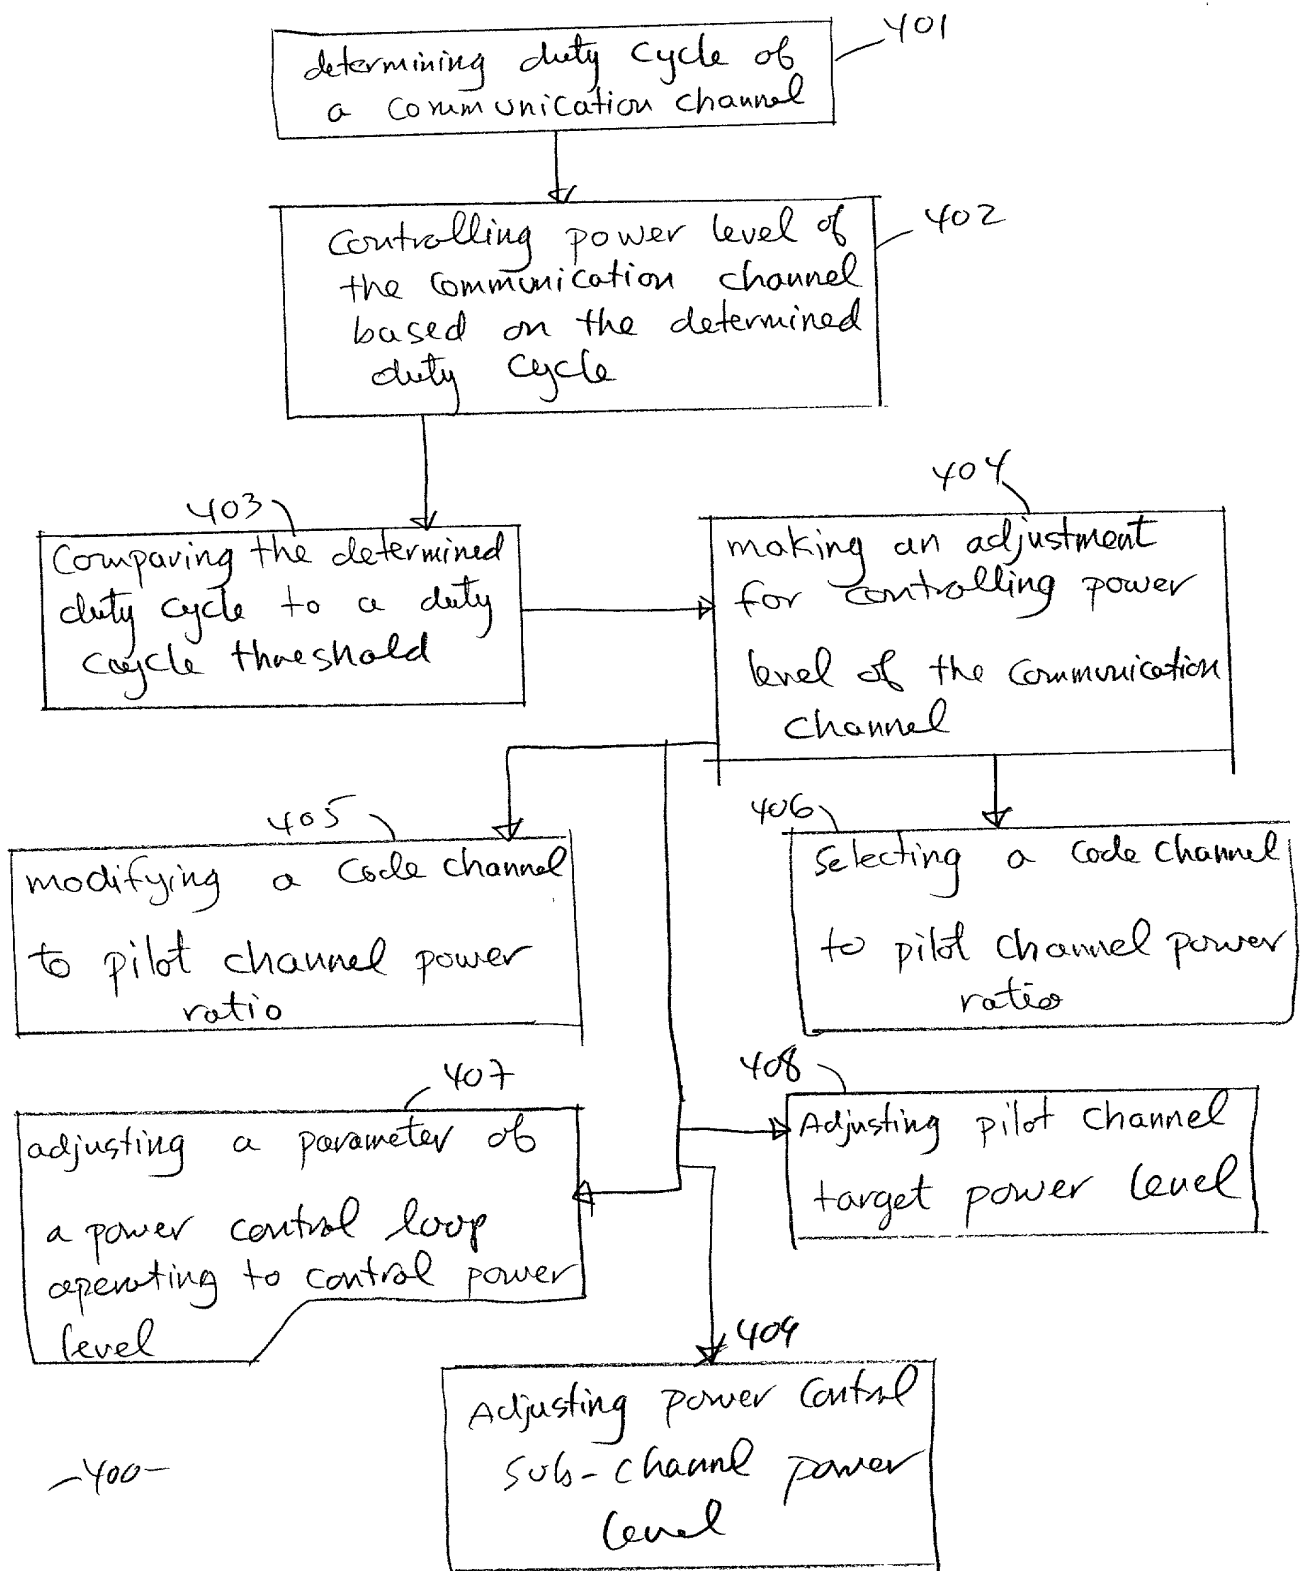 401
determining duty cycle of
a communication channel
402
Controlling power level of
the communication channel
based on the determined
duty cycle
403
Comparing the determined
duty cycle to a duty
cycle threshold
404
making an adjustment
for controlling power
level of the communication
channel
405
modifying a code channel
to pilot channel power
ratio
406
Selecting a code channel
to pilot channel power
ratio
407
adjusting a parameter of
a power control loop
operating to control power
level
408
Adjusting pilot channel
target power level
409
Adjusting power control
sub-channel power
level
-400-